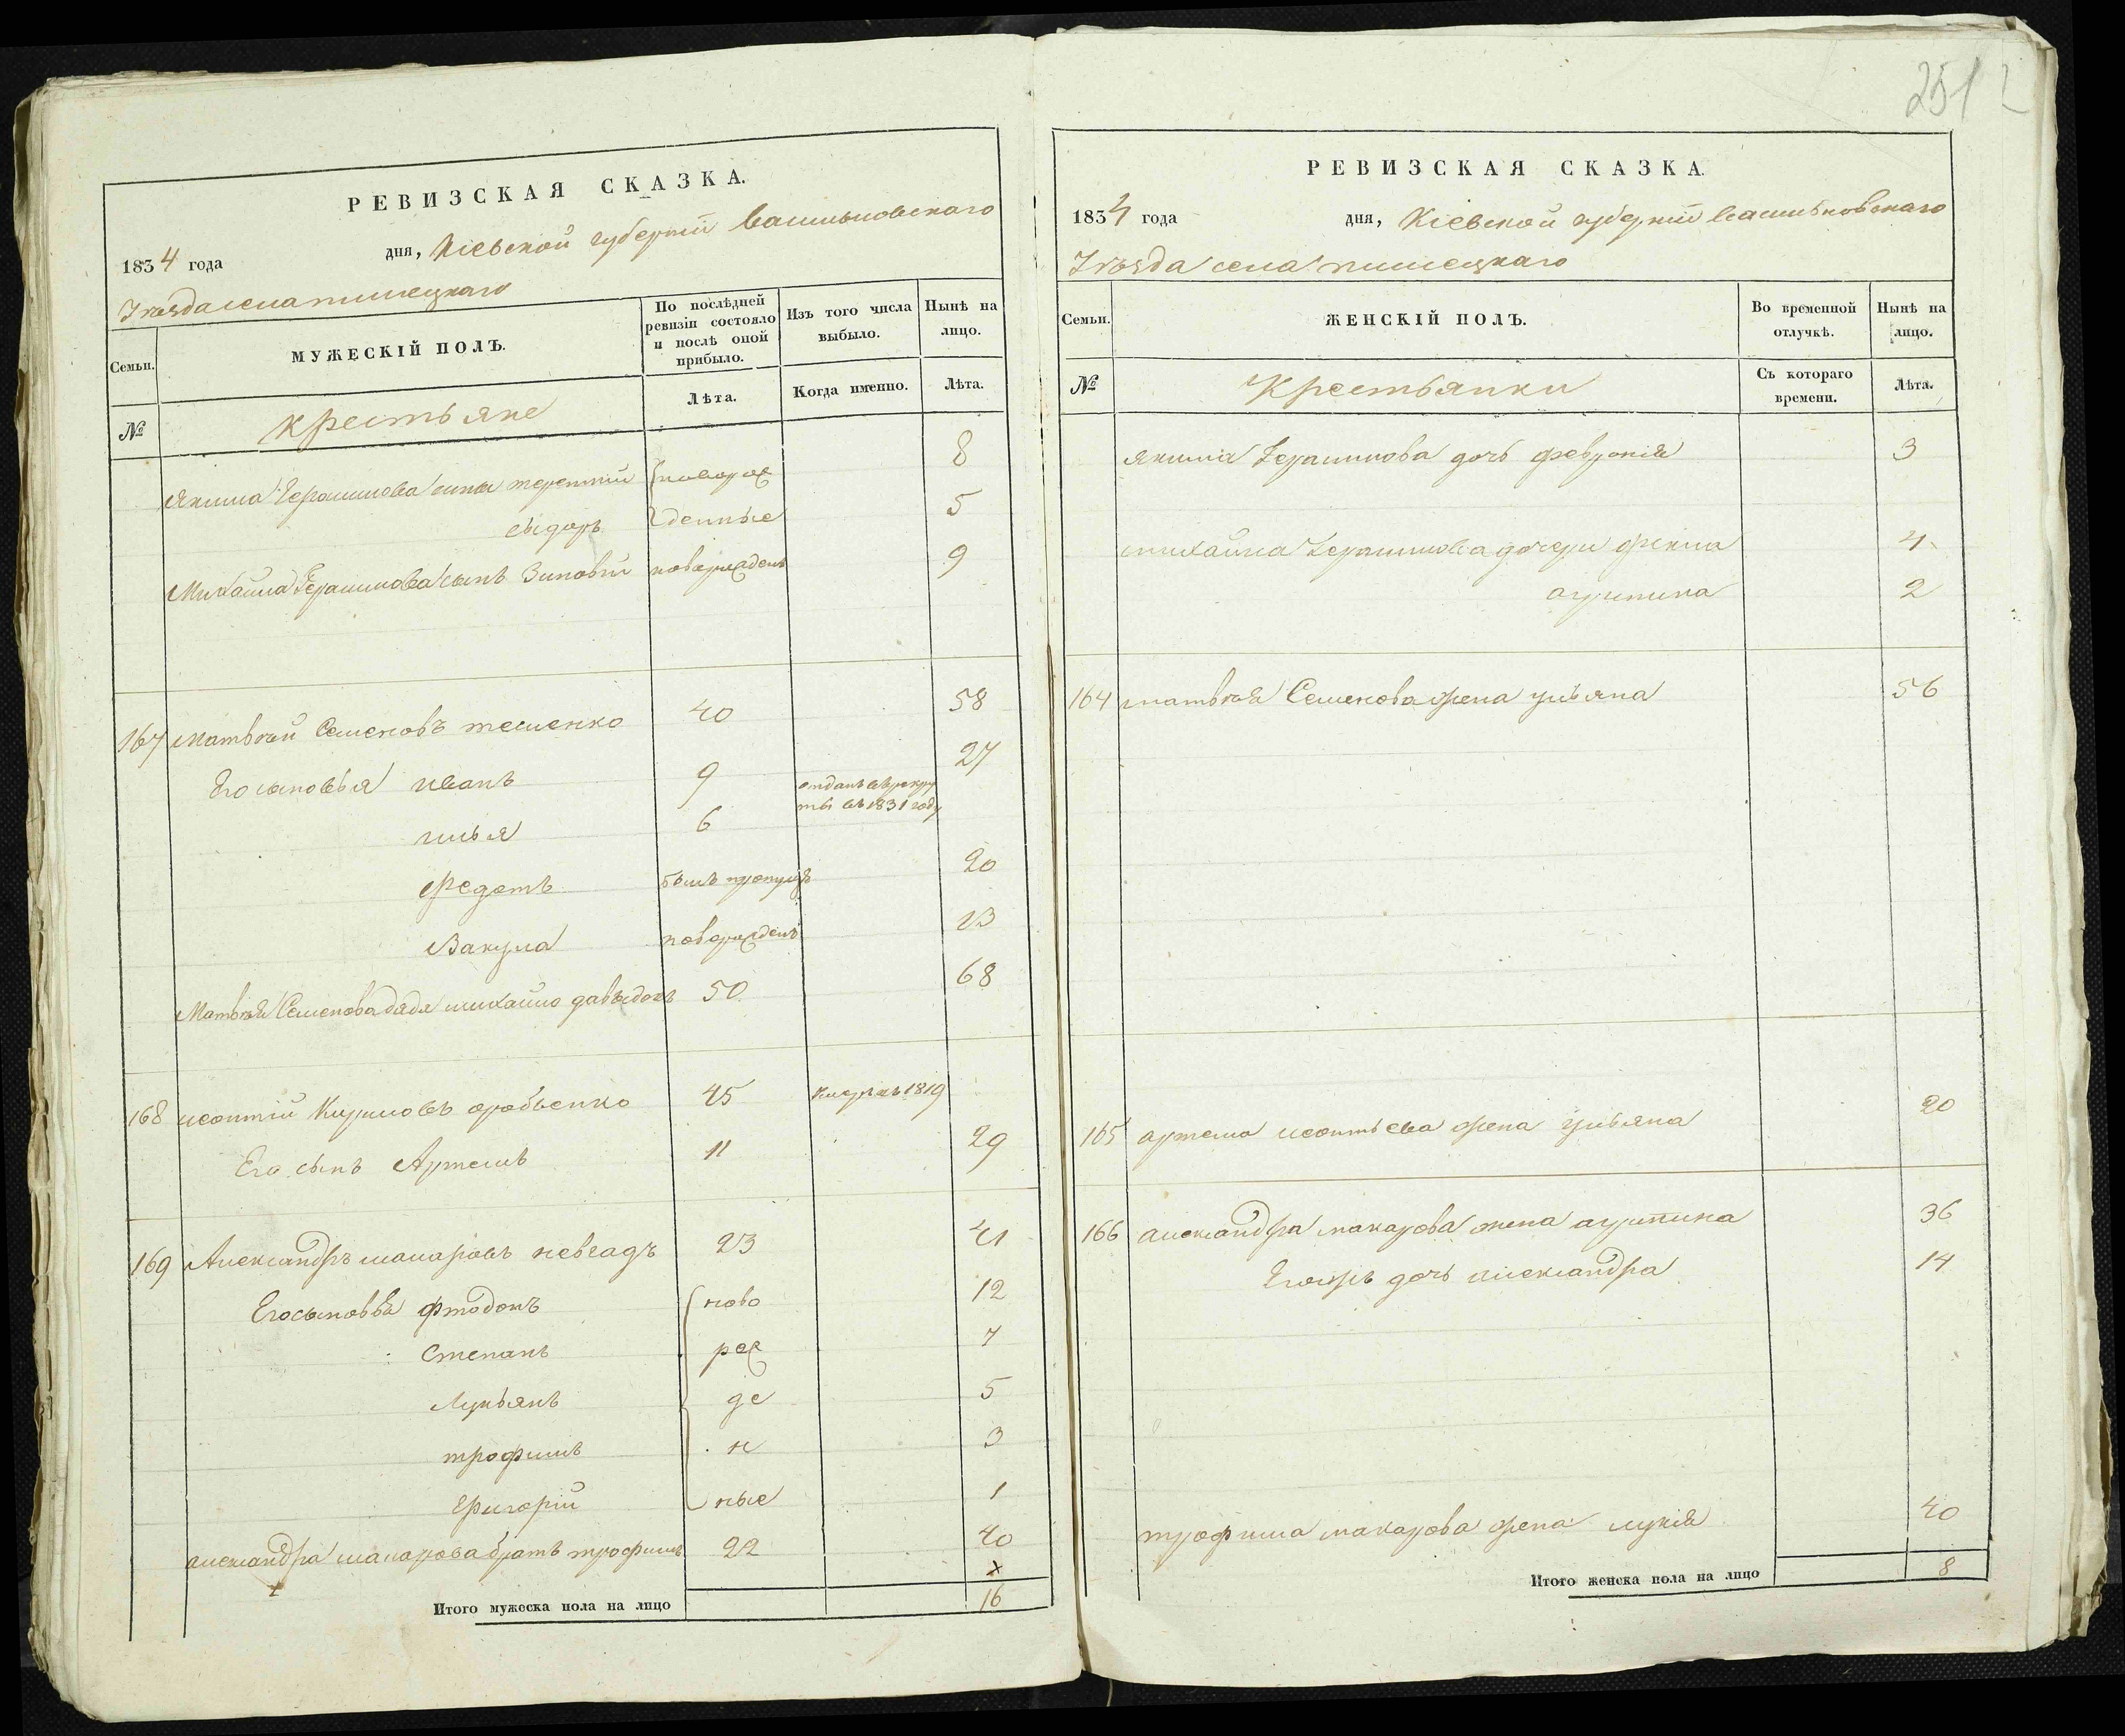 251
РЕВИЗСКАЯ СКАЗКА.
1834 года дня, Кіевской губерніи Васильковскаго
Уѣзда села
Семьи. МУЖЕСКІЙ ПОЛЪ. По послѣдней ревизіи состояло и послѣ оной прибыло. Изъ того числа выбыло. Нынѣ на лицо.
№ Крестьяне Лѣта. Когда именно. Лѣта.
Якима Герасимова сины терентій новорож 8
сыдоръ денные 5
Михайла Герасимова сынъ Зиновій новорожденъ 9
167 Матвѣй Семеновъ 40 58
Его сыновья иванъ 9 27
илья 6 отданъ въ рекру
ты въ 1831 году
Федотъ былъ 20
Вакула новорожденъ 13
Матвѣя Семенова дядя михайло 50 68
168 леонтій Кириловъ 45 1819
Его сынъ Артемъ 11 29
169 Александръ макаровъ 23 41
Его сыновья ново 12
Степанъ рож 7
Лукьянъ де 5
трофимъ н 3
Григорій ные 1
александра макарова братъ трофимъ 22 40
Итого мужеска пола на лицо 16
РЕВИЗСКАЯ СКАЗКА.
1834 года дня, Кіевской губерніи Васильковскаго
Уѣзда села
Семьи. ЖЕНСКІЙ ПОЛЪ. Во временной отлучкѣ. Нынѣ на лицо.
№ Крестьянки Съ котораго времени. Лѣта.
якима Герасимова дочь февронія 3
михайла Герасимова дочери фекла 4
агрипина 2
164 матвѣя Семенова жена ульяна 56
165 артема леонтьева жена ульяна 20
166 александра макарова жена агрипина 36
Егожъ дочь александра 14
трофима макарова жена лукія 40
Итого женска пола на лицо 8